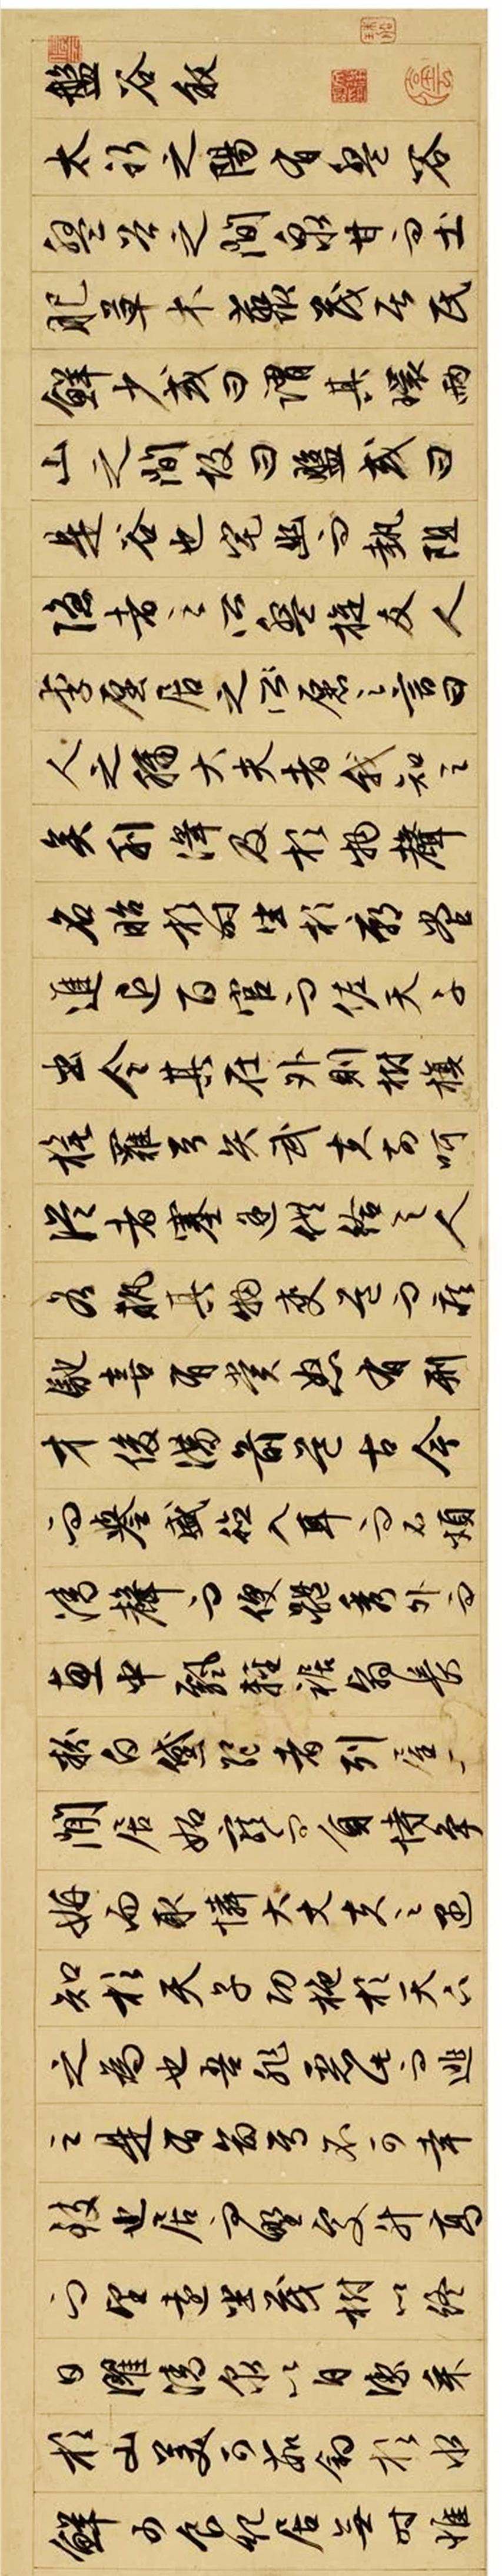 盤谷叙
太行之陽有盤谷
盤谷之間泉甘而土
肥草木藂茂居民
鮮少或曰謂其環兩
山之間故曰盤或曰
是谷也宅幽而勢阻
隱者之所盤旋友人
李愿居之愿之言曰
人之稱大夫者我知之
矣利澤及於物聲
名昭於時坐於廟堂
進退百官而佐天子
出令其在外則樹旗
旄羅弓矢武夫前呵
從者塞途供給之人
各執其物夾道而疾
馳喜有賞怒有刑
才俊滿前道古今
而譽盛德入耳而不煩
清聲而便體秀外而
惠中飄輕裾翳長
粉白黛綠者列屋
閒居妬寵而負恃爭
妍而取憐大丈夫之遇
知於天子功施於天下
之為也吾非惡此而逃
之是有命焉不可幸
致也居而野處升高
而望遠坐茂樹以終
日濯清泉以自潔采
於山美可茹釣於水
鮮可食起居無時惟